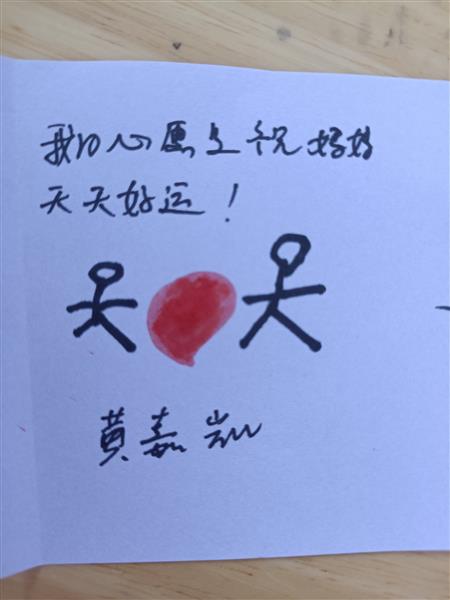 我的心愿是祝妈妈
天天好运！
黄嘉凯